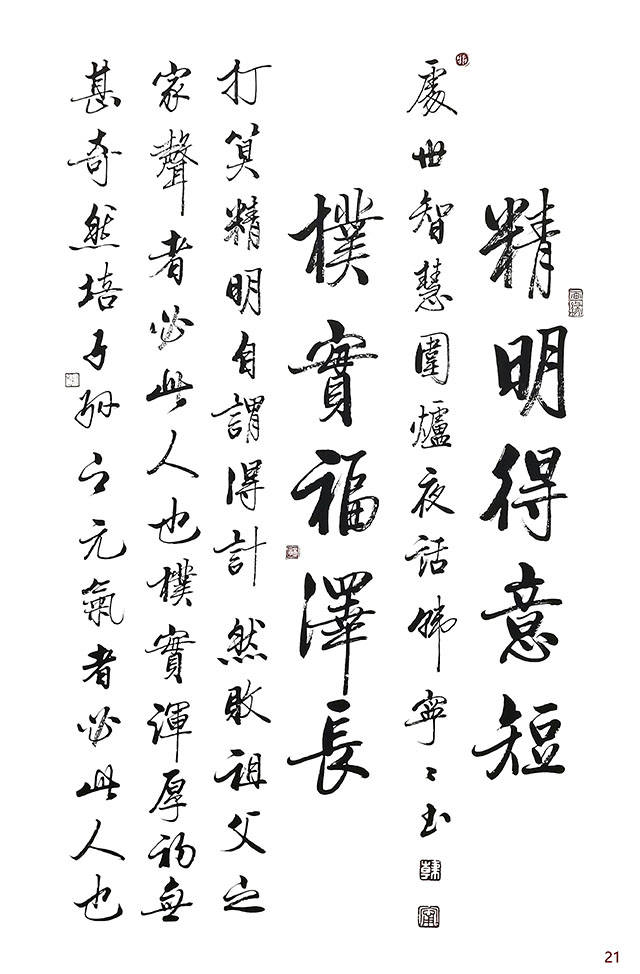 精明得意短
處世智慧圍爐夜話韓寧〻書
韓
寧
樸實福澤長
打算精明自謂得計然敗祖父之
家聲者必此人也樸實渾厚初無
甚奇然培子孫之元氣者必此人也
21